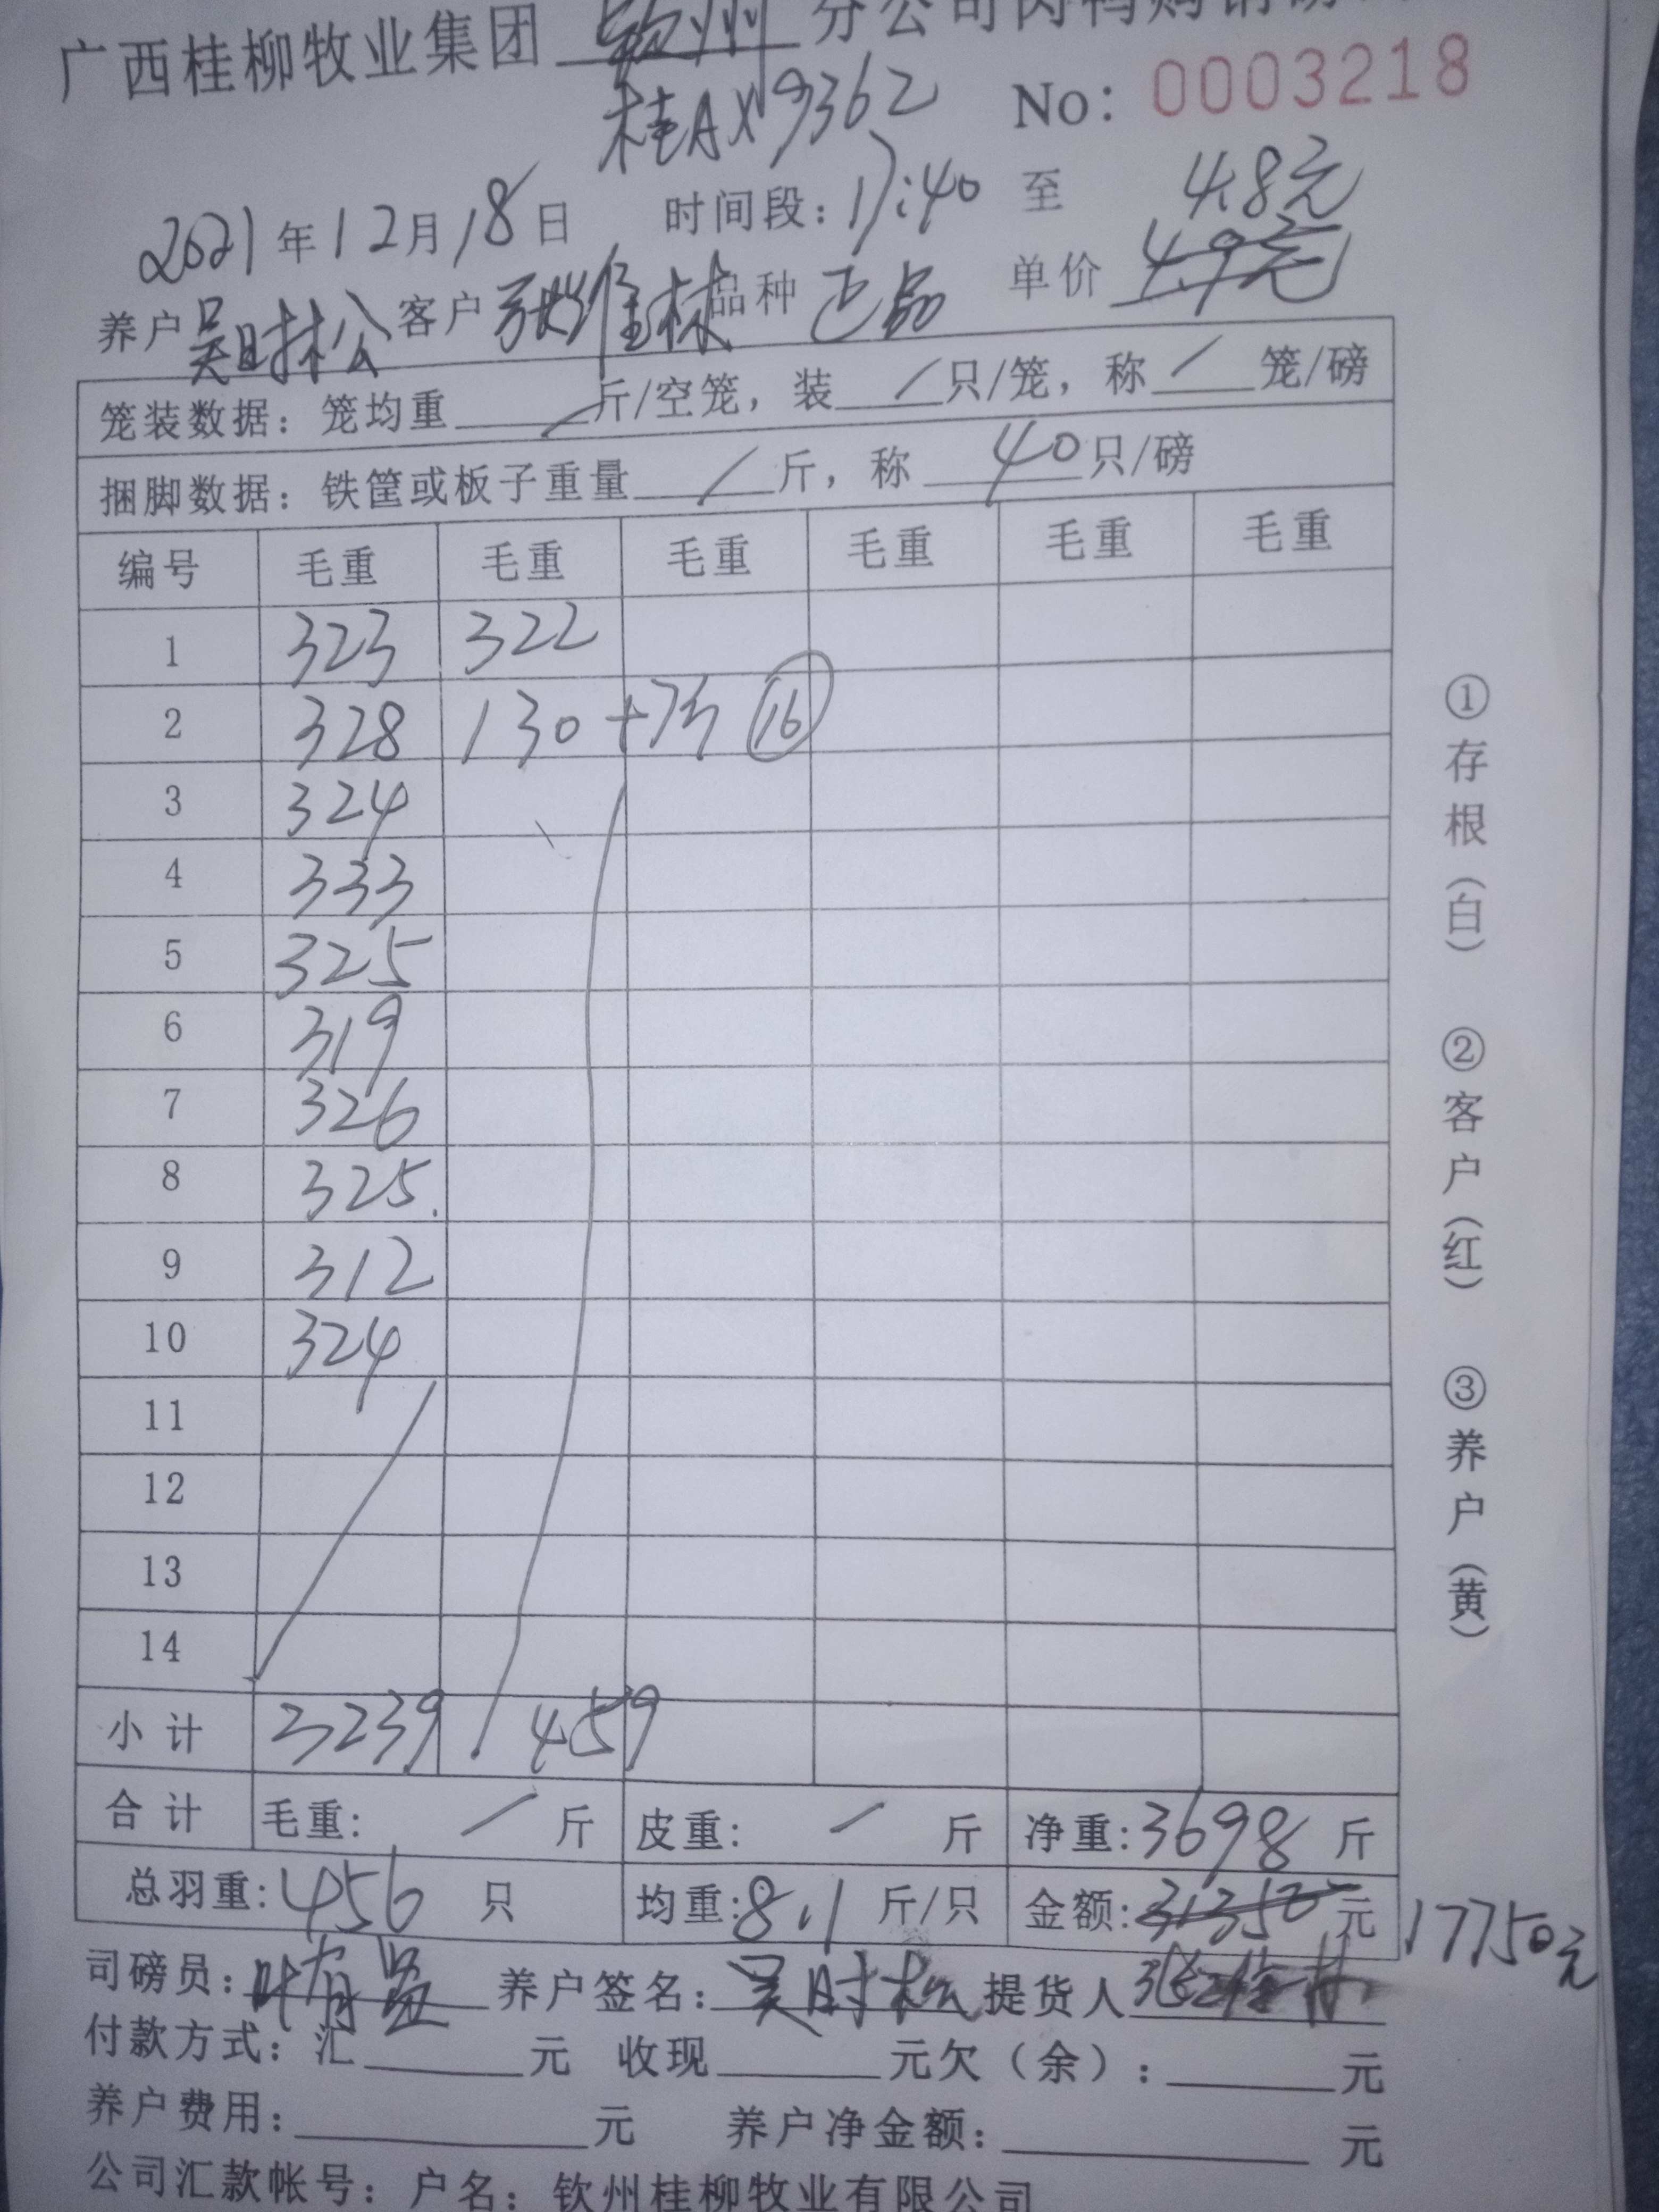 广西桂柳牧业集团 钦州 分公司肉鸭购销磅
桂AX9362 No：0003218
2021年12月18日 时间段：17:40 至 4.8元
养户 吴时松 客户 张维林 品种 正品 单价 4.9元
笼装数据：笼均重 / 斤/空笼，装 / 只/笼，称 / 笼/磅
捆脚数据：铁筐或板子重量 / 斤，称 40 只/磅
编号 毛重 毛重 毛重 毛重 毛重 毛重
1 323 322
2 328 130 + 7 16
3 324
4 333
5 325
6 319
7 326
8 325.
9 312
10 324
11
12
13
14
小计 3239 459
合计 毛重： / 斤 皮重： / 斤 净重：3698 斤
总羽重：456 只 均重：8.1 斤/只 金额：31350 元 17750元
司磅员：叶有 养户签名：吴时松 提货人 张维林
付款方式：汇 元 收现 元欠（余）： 元
养户费用： 元 养户净金额： 元
公司汇款帐号：户名：钦州桂柳牧业有限公司
①存根（白） ②客户（红） ③养户（黄）